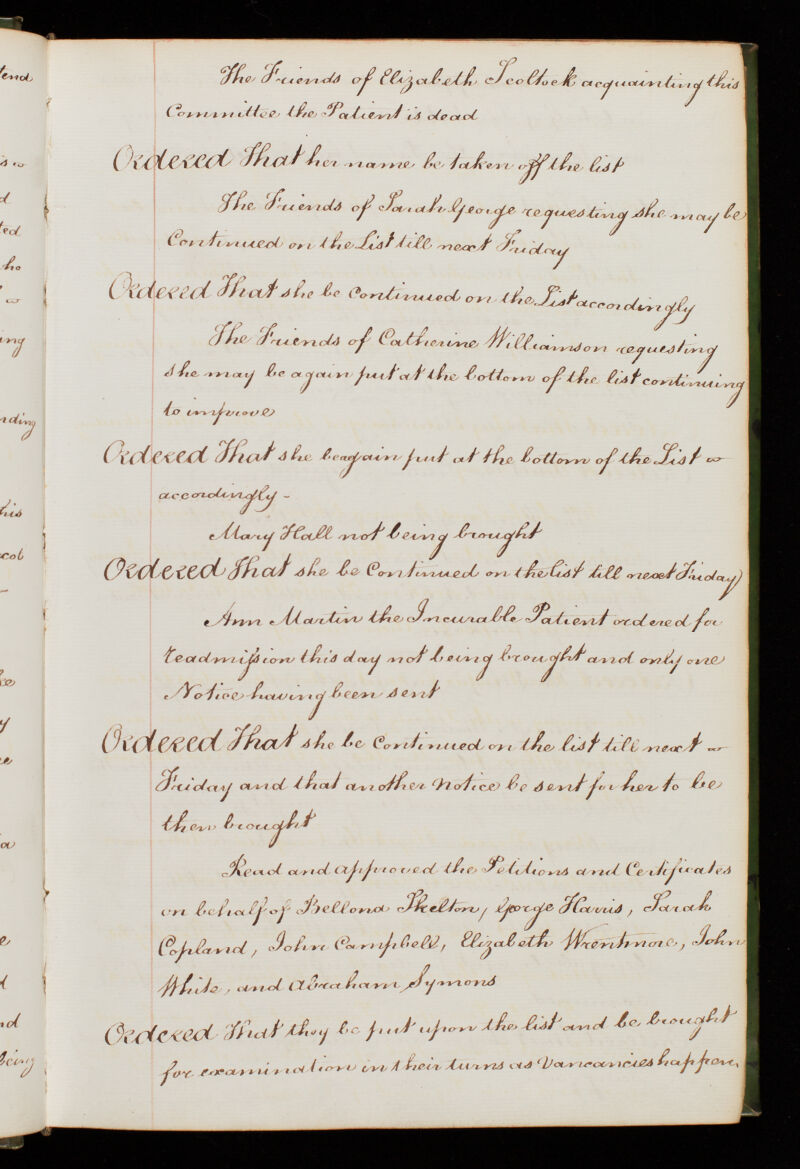 The Friends of Elizabeth Scoltock acquainting this
Committee the Patient is dead
Ordered That her name be taken off the list
The Friends of Sarah George requesting she may be
Continued on the List till next Friday
Ordered That she be continued on the List accordingly
The Friends of Catherine Williamson requesting
she may be again put at the bottom of the list continuing
to improve
Ordered That she beagain put at the bottom of the List
accordingly -
Mary Hall not being brought
Ordered That she be Continued on the list till next Friday
Ann Martin the Incurable Patient ordered for
readmission this day not being brought and only one
Notice having been sent
Ordered That she be Continued on the list till next
Friday and that another Notice be sent for her to be
then brought
Read and approved the Petitions and Certificates
on behalf of Bellona Skelton, George Harris, Sarah
Copland, John Campbell, Elizabeth Wrentmore, John
White, and Abraham Symons
Ordered That they be put upon the list and be brought
for examination in their turns as Vancancies happen
tend
d
ted
ho
ing
nding
his
cob
y
e
a
e
d
nd
being